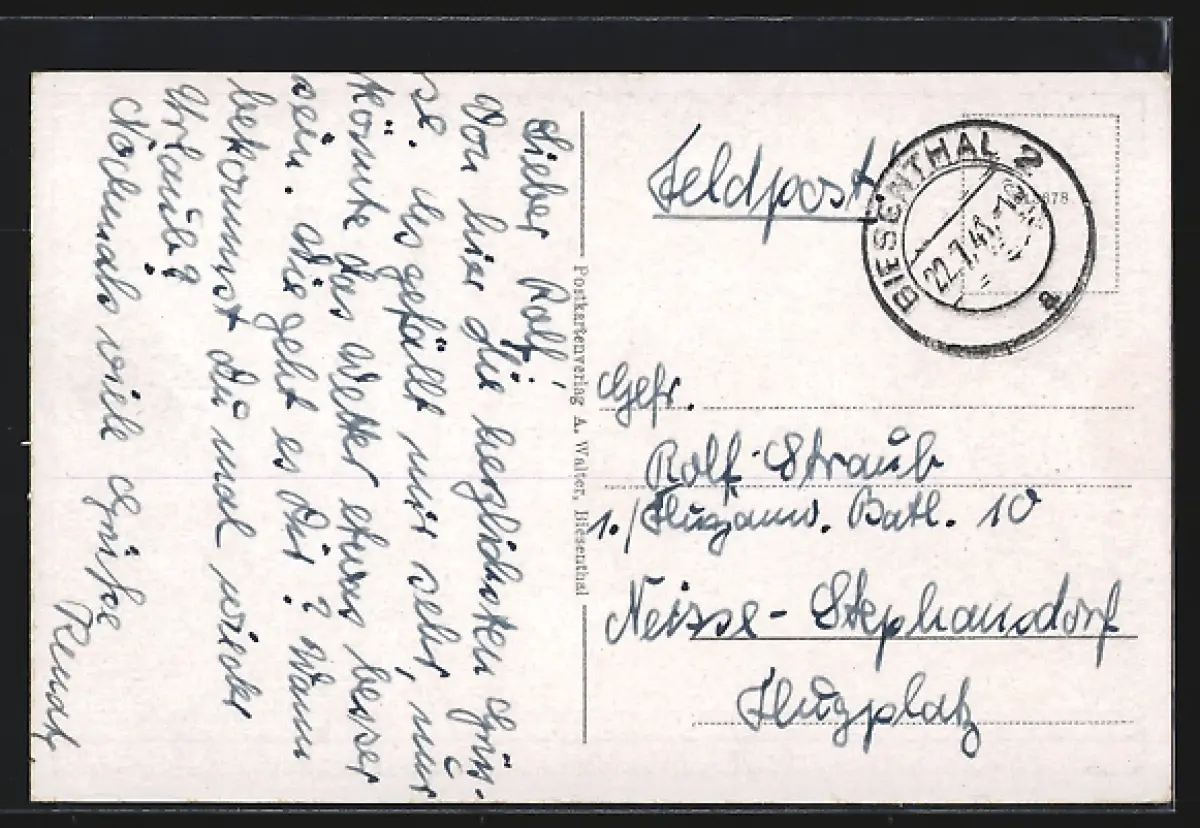 Lieber Rolf!
Von hier die herzlichsten Grüs-
se. Es gefällt mir sehr, nur
könnte das Wetter etwas besser
sein. Wie geht es Dir? Wann
bekommst Du mal wieder
Urlaub?
Nochmals viele Grüße
Postkartenverlag A. Walter, Biesenthal
Feldpost
BIESENTHAL 2
22.7.41.
a
878
Gefr.
Rolf Straub
1./Flugzanw. Batl. 10
Neisse-Stephansdorf
Flugplatz